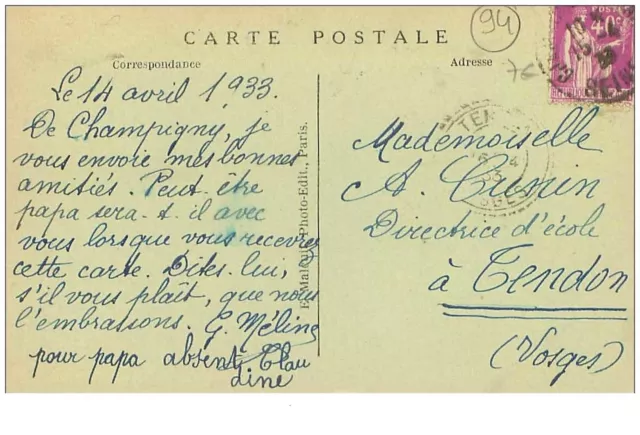 94
CARTE POSTALE
Correspondance
Adresse
POSTALE
40c
Le 14 avril 1933.
De Champigny, je
vous envoie mes bonnes
amitiés. Peut-être
papa sera-t-il avec
vous lorsque vous recevrez
cette carte. Dites-lui,
s'il vous plaît, que nous
l'embrassons. G. Méline
pour papa absent, Clau
dine
Photo-Edit., Paris.
Mademoiselle
A. Cunin
Directrice d'école
à Tendon
(Vosges)